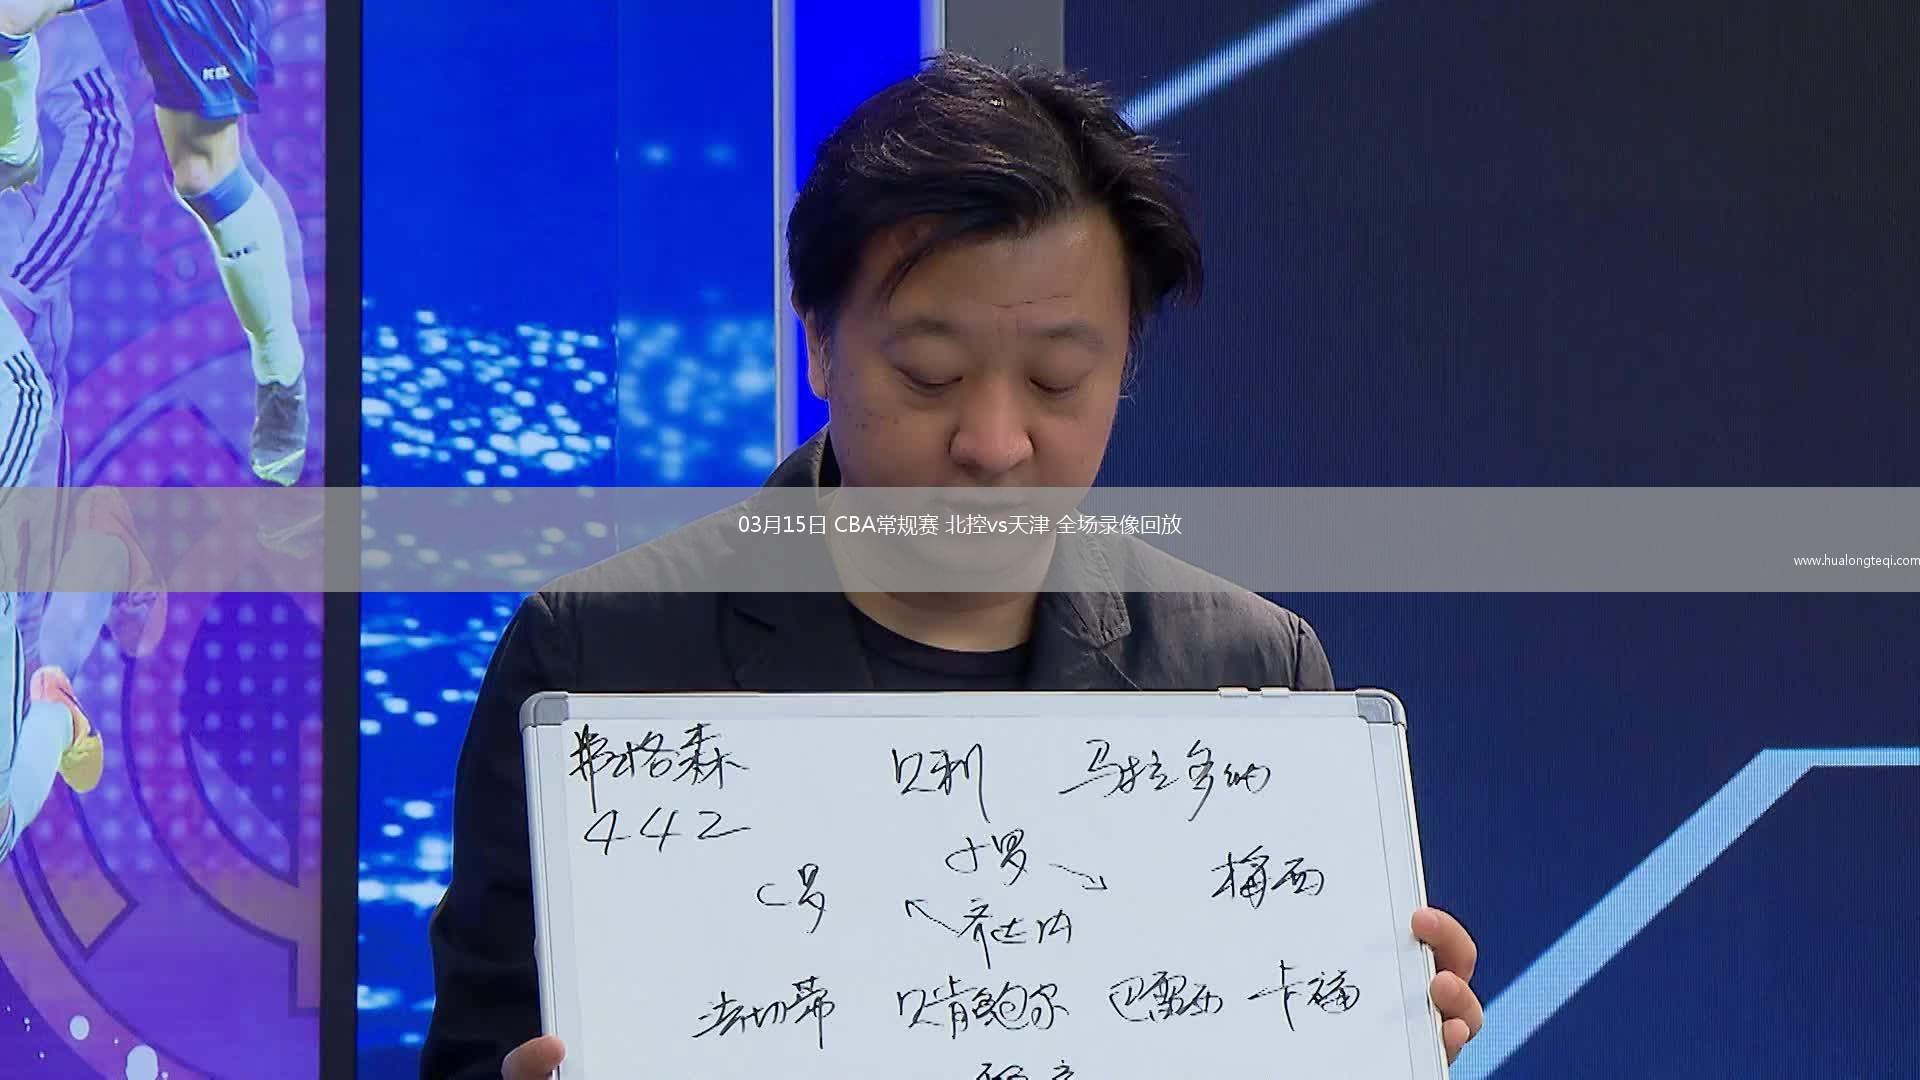 03月15日 CBA常规赛 北控vs天津 全场录像回放
www.hualongteqi.com
弗格森 贝利 马拉多纳
442
小罗
C罗 梅西
齐达内
法切蒂 贝肯鲍尔 巴雷西 卡福